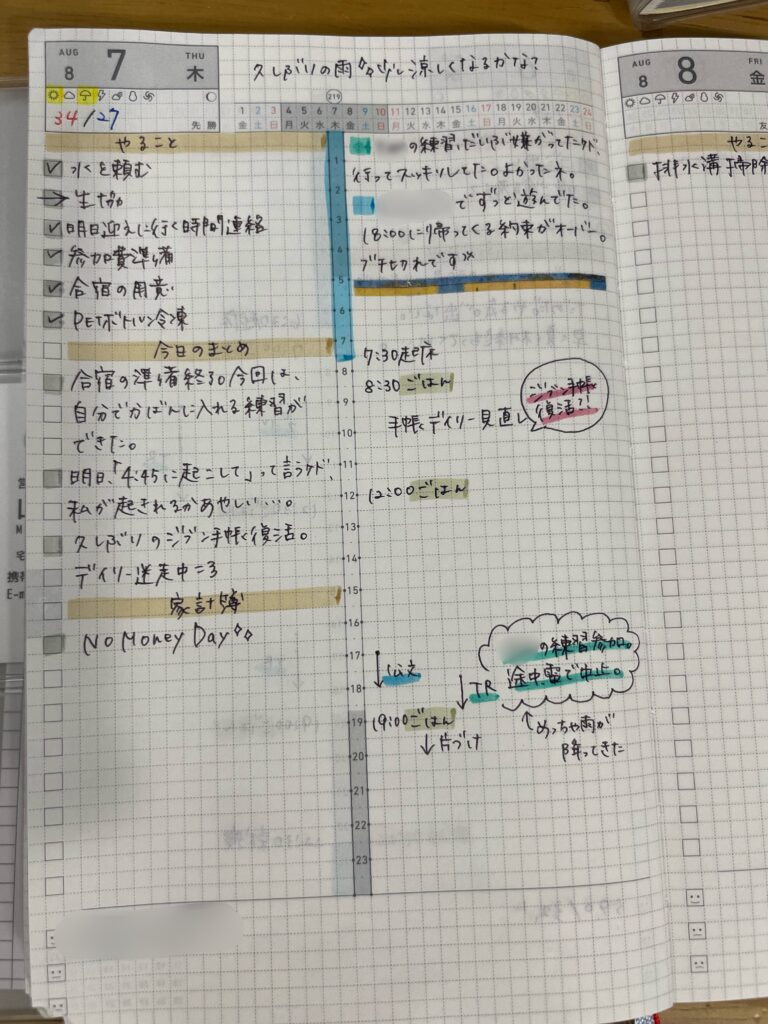 AUG 8 7 THU 木
久しぶりの雨 少しは涼しくなるかな?
34/27
先勝
219
1 2 3 4 5 6 7 8 9 10 11 12 13 14 15 16 17 18 19 20 21 22 23 24
金 土 日 月 火 水 木 金 土 日 月 火 水 木 金 土 日 月 火 水 木 金 土 日
やること
水を頼む
→ 生協
明日迎えに行く時間連絡
参加費準備
合宿の用意
PETボトル冷凍
今日のまとめ
合宿の準備終る。今回は、
自分でかばんに入れる練習が
できた。
明日、「4:45に起こして」って言うケド、
私が起きれるかあやしい…。
久しぶりのジブン手帳復活。
デイリー迷走中=3
家計簿
No Money Day
の練習、だいぶ嫌がってたケド、
行ってスッキリしてた。よかったネ。
でずっと遊んでた。
18:00に帰ってくる約束がオーバー。
ブチ切れです
1
2
3
4
5
6
7
8
9
10
11
12
13
14
15
16
17
18
19
20
21
22
23
7:30起床
8:30 ごはん
手帳デイリー見直し
ジブン手帳
復活?!
12:00 ごはん
↓公文
↓TR
の練習参加。
途中、雷で中止。
↑めっちゃ雨が
降ってきた
19:00 ごはん
↓片づけ
AUG 8 8 FRI 金
友
やるこ
排水溝掃除